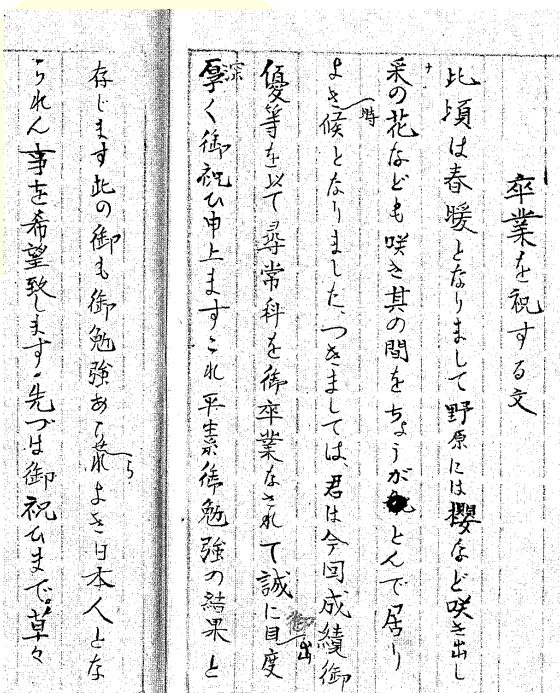 卒業を祝する文
此頃は春暖となりまして野原には櫻など咲き出し
菜の花なども咲き其の間をちょうがとんで居り
よき時候となりました、つきましては、君は今回成績御
優等を以て尋常科を御卒業なされて誠に御目出度
深厚く御祝ひ申上ますこれ平素御勉強の結果と
存じます此の御も御勉強あられよき日本人とな
られん事を希望致します。先づは御祝ひまで。草々